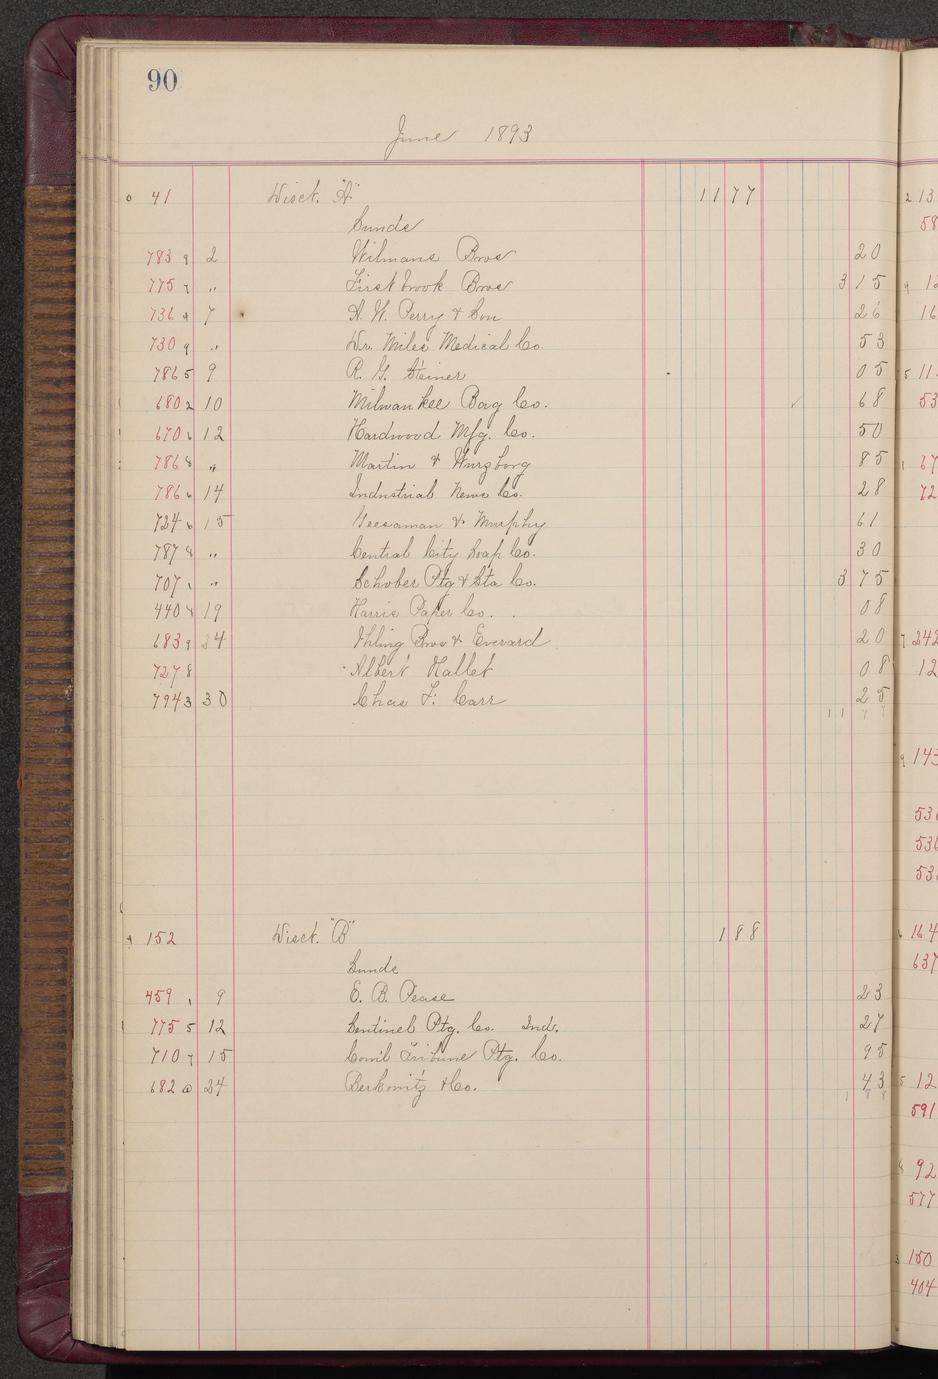 90
June 1893
0 41 Disct. "A" 11 77
Sunds
783 9 2 Wilmans Bros 20
775 7 " Firstbrook Bros 3 15
736 4 7 A. W. Perry & Son 26
730 9 " Dr. Miles Medical Co. 53
786 5 9 R. G. Steiner 05
680 2 10 Milwaukee Bag Co. ✓ 68
670 6 12 Hardwood Mfg. Co. 50
786 8 " Martin & Wurzburg 85
786 6 14 Industrial News Co. 28
724 6 15 Geesaman & Murphy 61
787 8 " Central City Soap Co. 30
707 1 " Schober Ptg & Sta Co. 3 75
440 8 19 Harris Paper Co. 08
683 9 24 Ihling Bros & Everard 20
727 8 Albert Hallet 08
794 3 30 Chas F. Carr 25
11 77
4 152 Disct. "B" 1 88
Sunds
459 1 9 E. B. Pease 23
775 5 12 Sentinel Ptg. Co. Ind. 27
710 7 15 Coml Tribune Ptg. Co. 95
682 0 24 Berkowitz & Co. 43
1 88
2 13
58
9 12
16
5 11
53
1 67
72
7 242
12
9 143
536
536
535
6 164
637
5 12
591
8 92
577
3 150
404